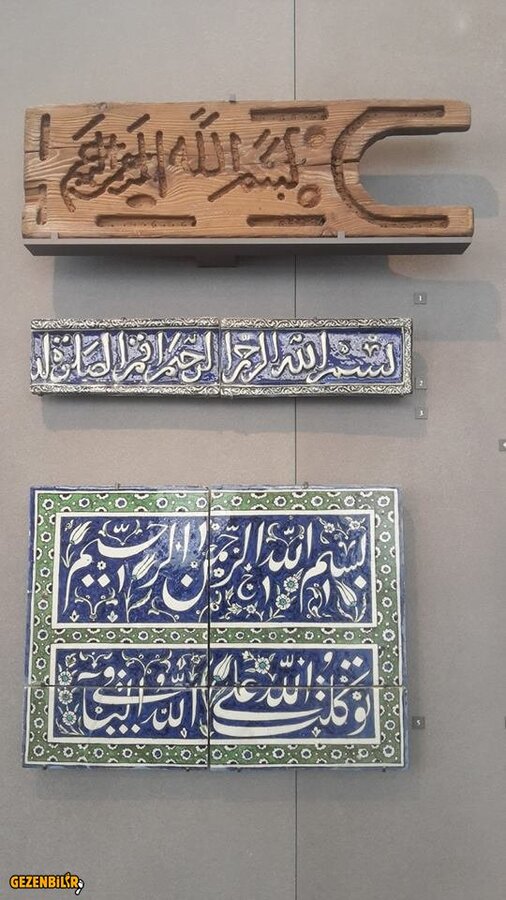 بسم الله الرحمن الرحيم
1
بسم الله الرحمن الرحيم اقم الصلوة لد
2
3
بسم الله الرحمن الرحيم
على الله الباقي
5
GEZENBİLİR